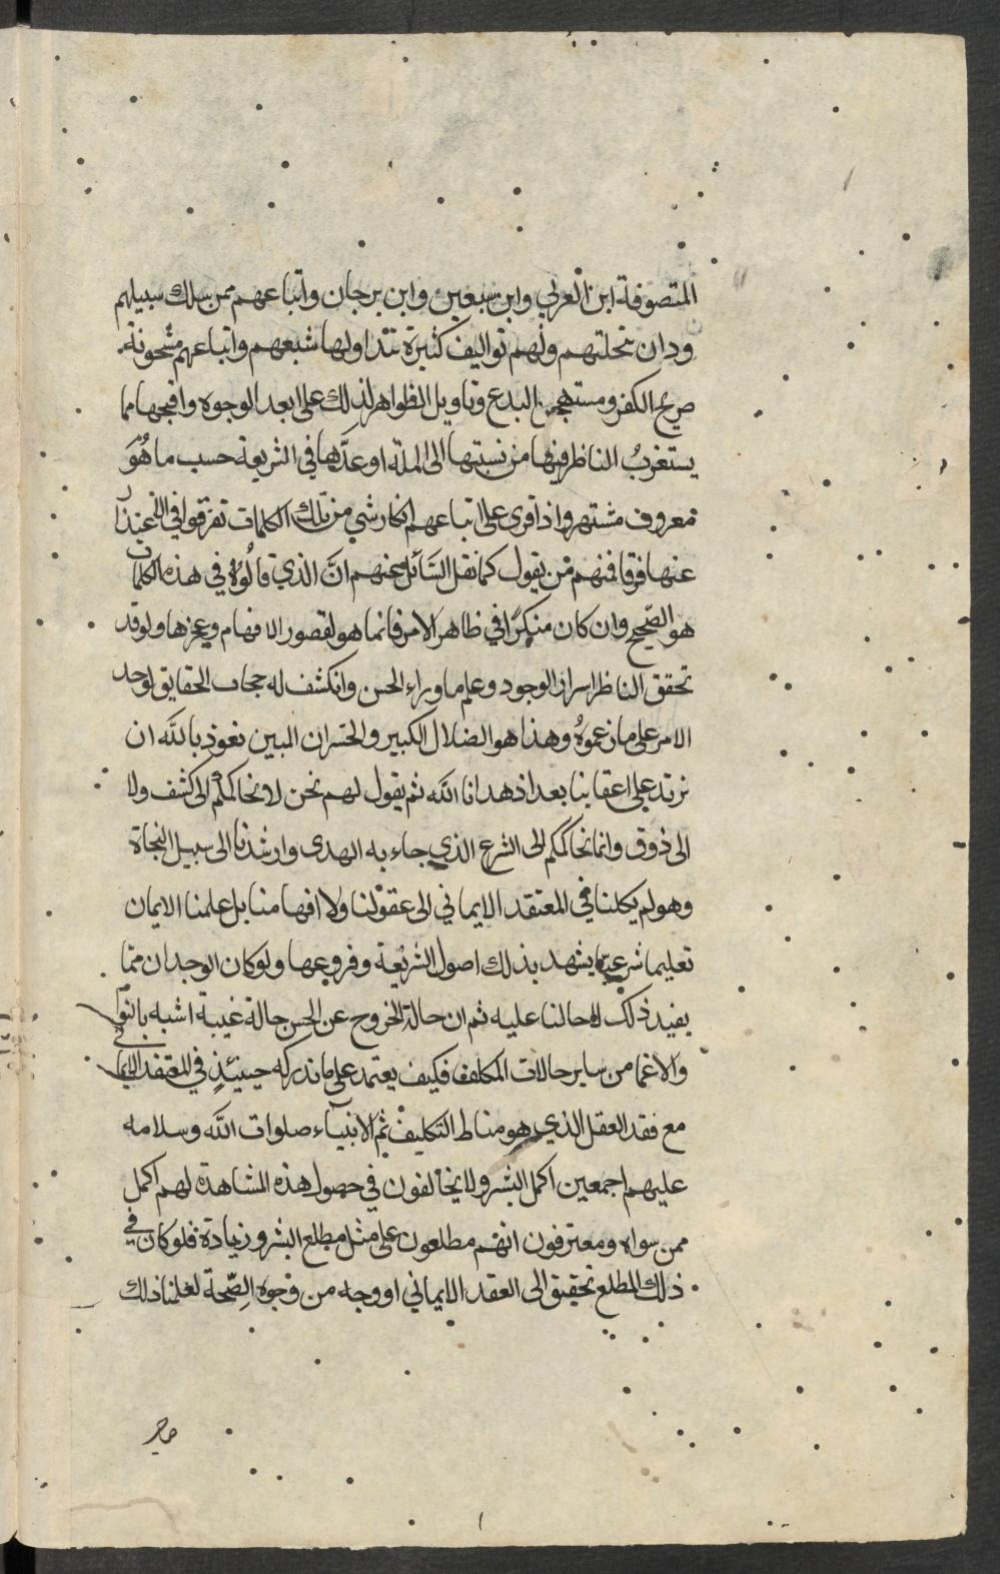 المتصوفة ابن العربي وابن سبعين وابن برجان واتباعهم ممن سلك سبيلهم
ودان بنحلتهم ولهم تواليف كثيرة يتداولها شبعهم واتباعهم مشحونة
صريح الكفر ومستهجن البدع وتاويل الظواهر لذلك على ابعد الوجوه واقبحها مما
يستغربُ الناظر فيها من نسبتها الى الملة او عدّها في الشريعة حسب ما هُوَ
معروف مشتهر واذا قرى على اتباعهم انكار شي من تلك الكلمات تفرقوا في
عنها فرقا فمنهم مَن يقول كما نقل السَائل عنهم انَّ الذي قالُوهُ في هذه الكلمات
هو الصّحيح وان كان منكرًا في ظاهر الامر فانما هو لقصور الافهام وعجزها ولو قد
تحقق الناظر اسرار الوجود وعلم ما وراء الحس وانكشف له حجاب الحقايق لوجد
الامر على ما زعموهُ وهذا هو الضلال الكبير والخسران المبين نعوذ بالله ان
نرتد على اعقابنا بعد اذ هدانا الله ثم يقول لهم نحن لا نحاكمكم الى كشف ولا
الى ذوق وانما نحاكمكم الى الشرع الذي جاء به الهدى وارشدنا الى سبيل النجاة
وهو لم يكلنا في المعتقد الايماني الى عقولنا ولا افهامنا بل علمنا الايمان
تعليما شرعيا يشهد بذلك اصول الشريعة وفروعها ولو كان الوجدان ممّا
يفيد ذلك لاحالنا عليه ثم ان حالة الخروج عن الحس حالة غيبة اشبه بالنوم
والاغما من ساير حالات المكلف فكيف يعتمد على ما ندركه حينئذٍ في المعتقد الايماني
مع فقد العقل الذي هو مناط التكليف ثم الانبياء صلوات الله وسلامه
عليهم اجمعين اكمل البشر ولا يخالفون في حصول هذه المشاهدة لهم اكمل
ممن سواه ومعترفون انهم مطلعون على مثل مطلع البشر وزيادة فلو كان في
ذلك المطلع تحقيق الى العقد الايماني او وجه من وجوه الصّحة لعلمنا ذلك